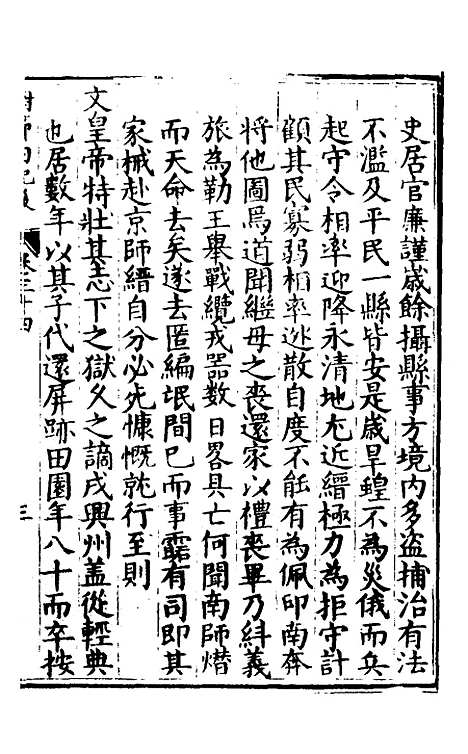 史居官廉謹歳餘攝縣事方境内多盗捕治有法
不濫及平民一縣皆安是歳旱蝗不為災俄而兵
起守令相率迎降永清地尤近縉極力為拒守計
顧其民寡弱相率逃散自度不能有為佩印南奔
將他圖焉道聞繼母之喪還家以禮喪畢乃糾義
旅為勤王舉戰纜戎噐数日畧具亡何聞南師熸
而天命去矣遂去匿編氓間已而事露有司即其
家械赴京師縉自分必死慷慨就行至則
文皇帝特壯其志下之獄久之謫戍興州盖從輕典
也居數年以其子代還屏跡田園年八十而卒按
卷三十四
三